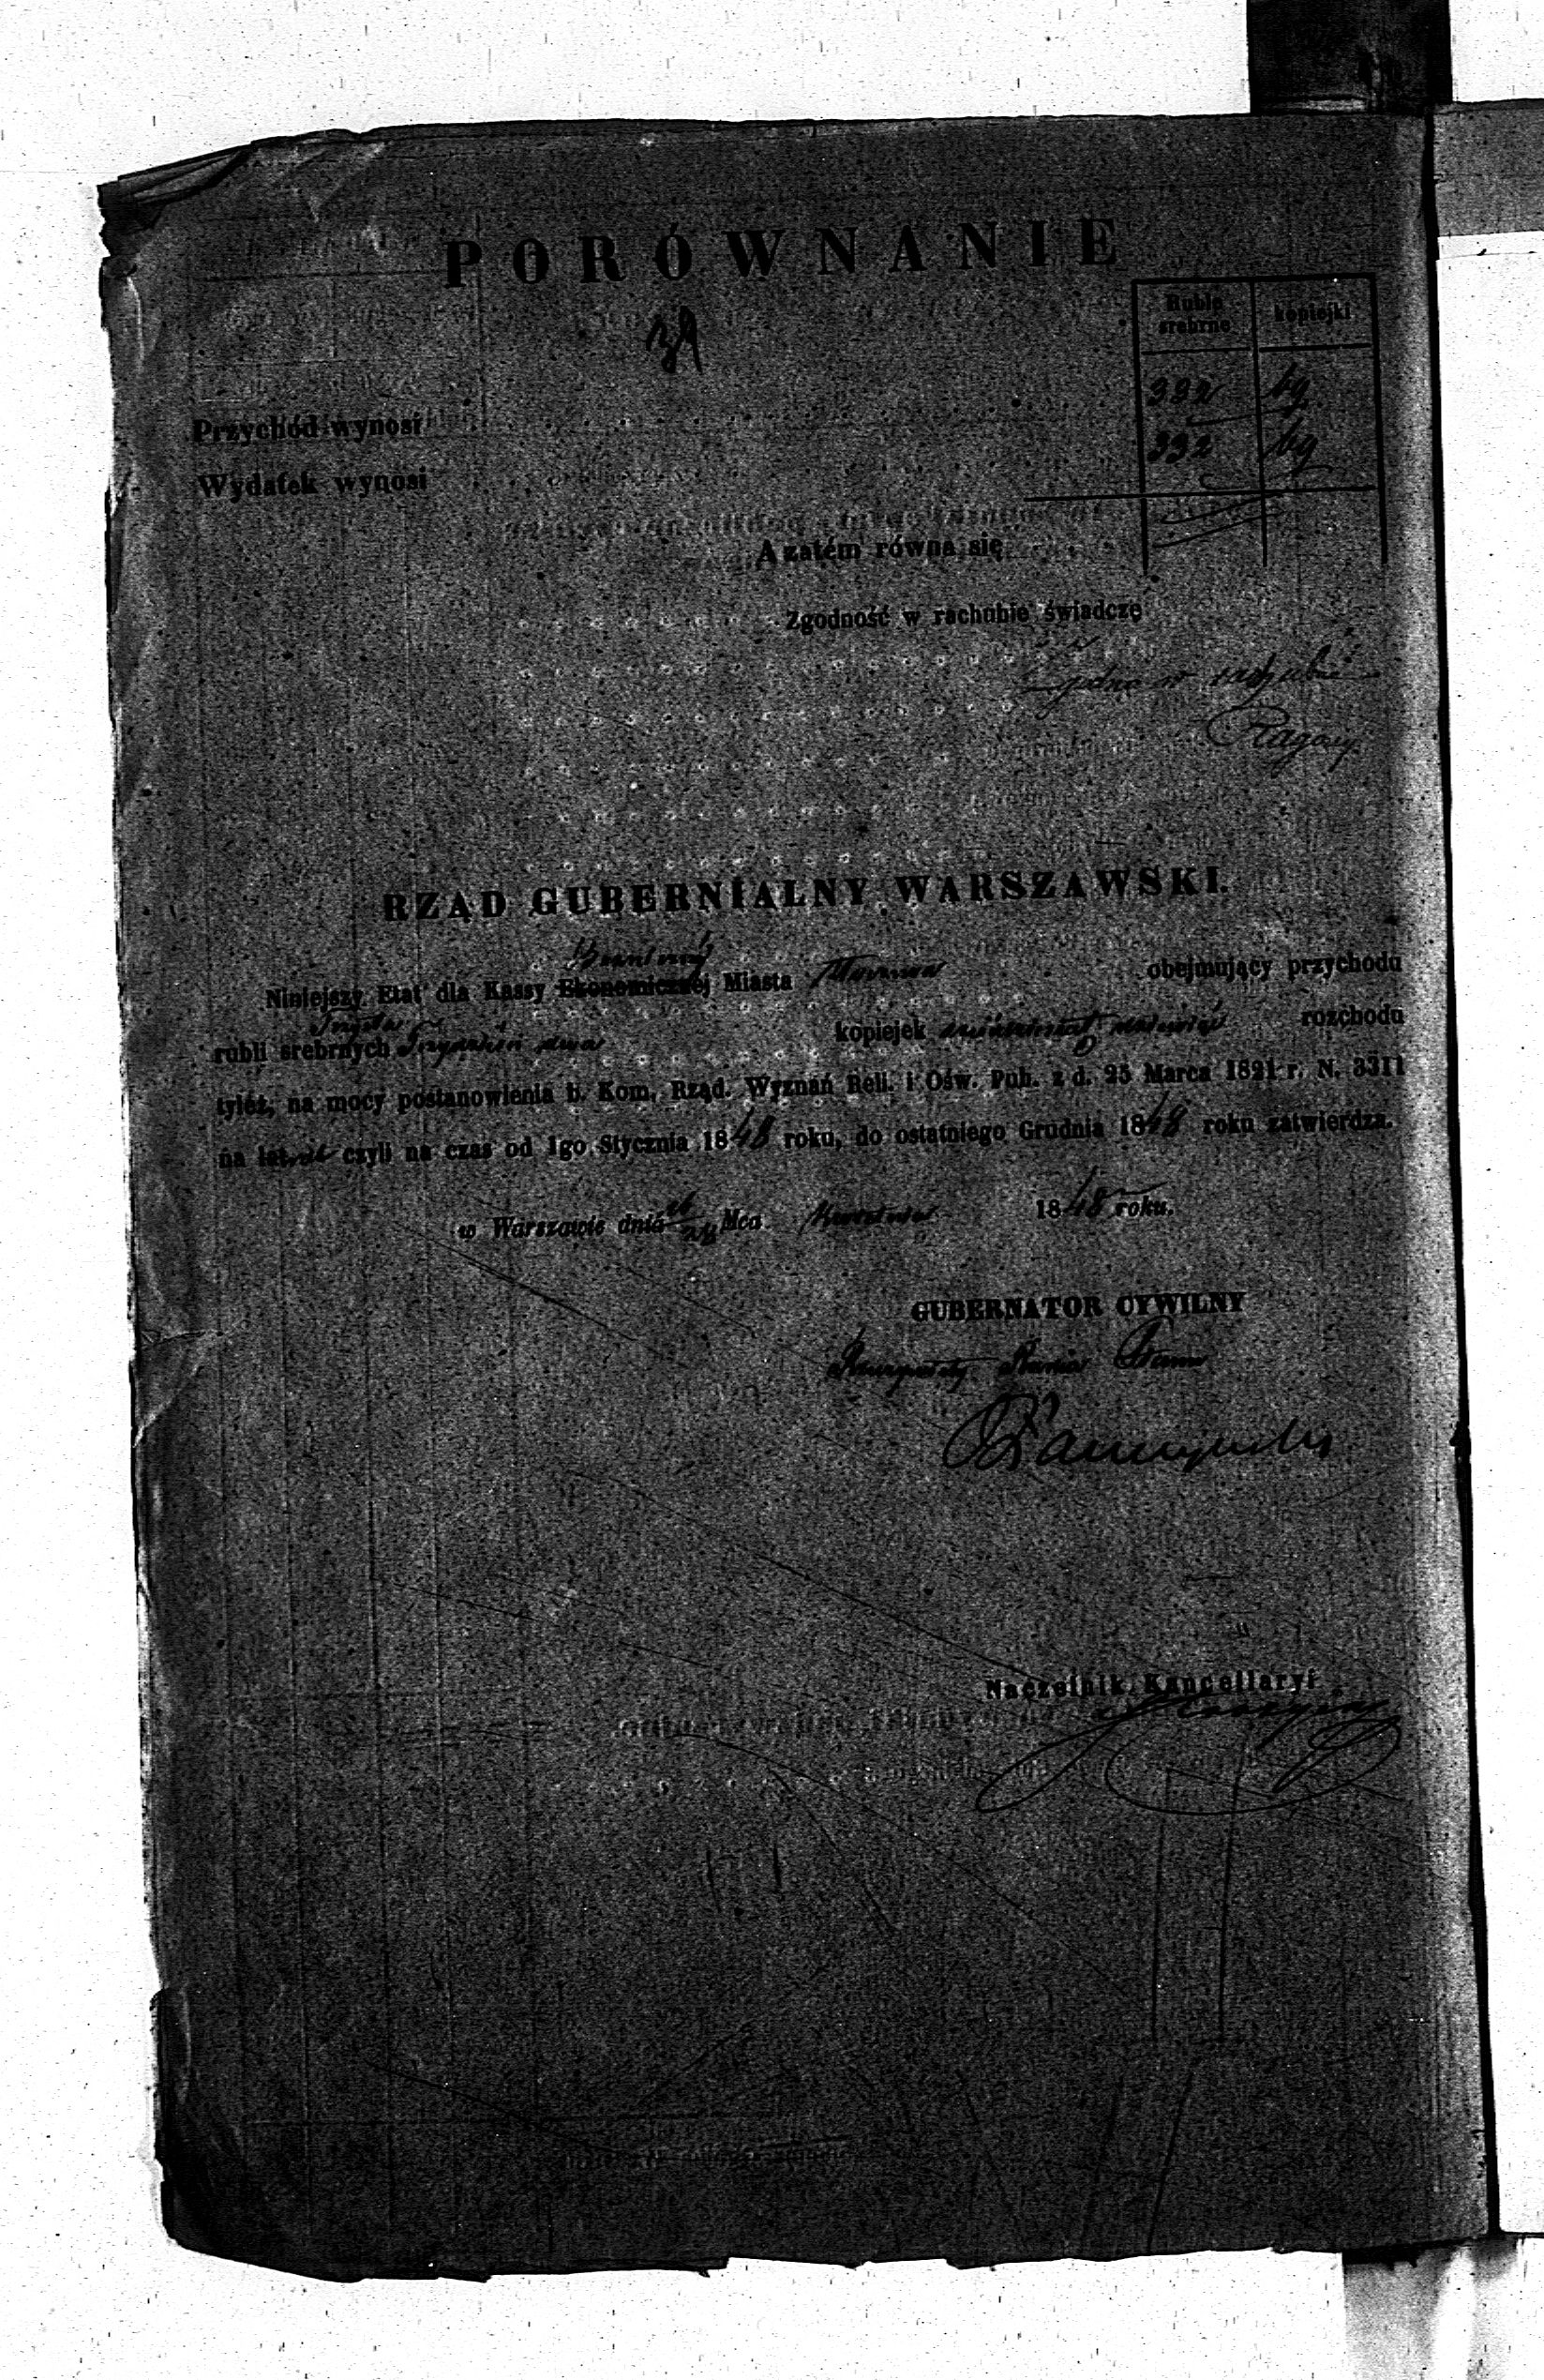 PORÓWNANIE
Ruble srebrne kopiejki
Przychód wynosi 332 69
Wydatek wynosi 332 69
A zatém równa się
Zgodność w rachubie świadczę
w rachubie
RZĄD GUBERNIALNY WARSZAWSKI.
Niniejszy Etat dla Kassy Ekonomicznej Miasta obejmujący przychodu
rubli srebrnych Trzysta Trzydzieści dwa kopiejek sześćdziesiąt dziewięć rozchodu
tyleż, na mocy postanowienia b. Kom. Rząd. Wyznań Reli. i Ośw. Pub. z d. 25 Marca 1821 r. N. 3311
na lat czyli na czas od 1go Stycznia 1848 roku, do ostatniego Grudnia 1848 roku zatwierdza.
w Warszawie dnia Mca Kwietnia 1848 roku.
GUBERNATOR CYWILNY
Rzeczywisty Radca Stanu
Naczelnik Kancellaryi